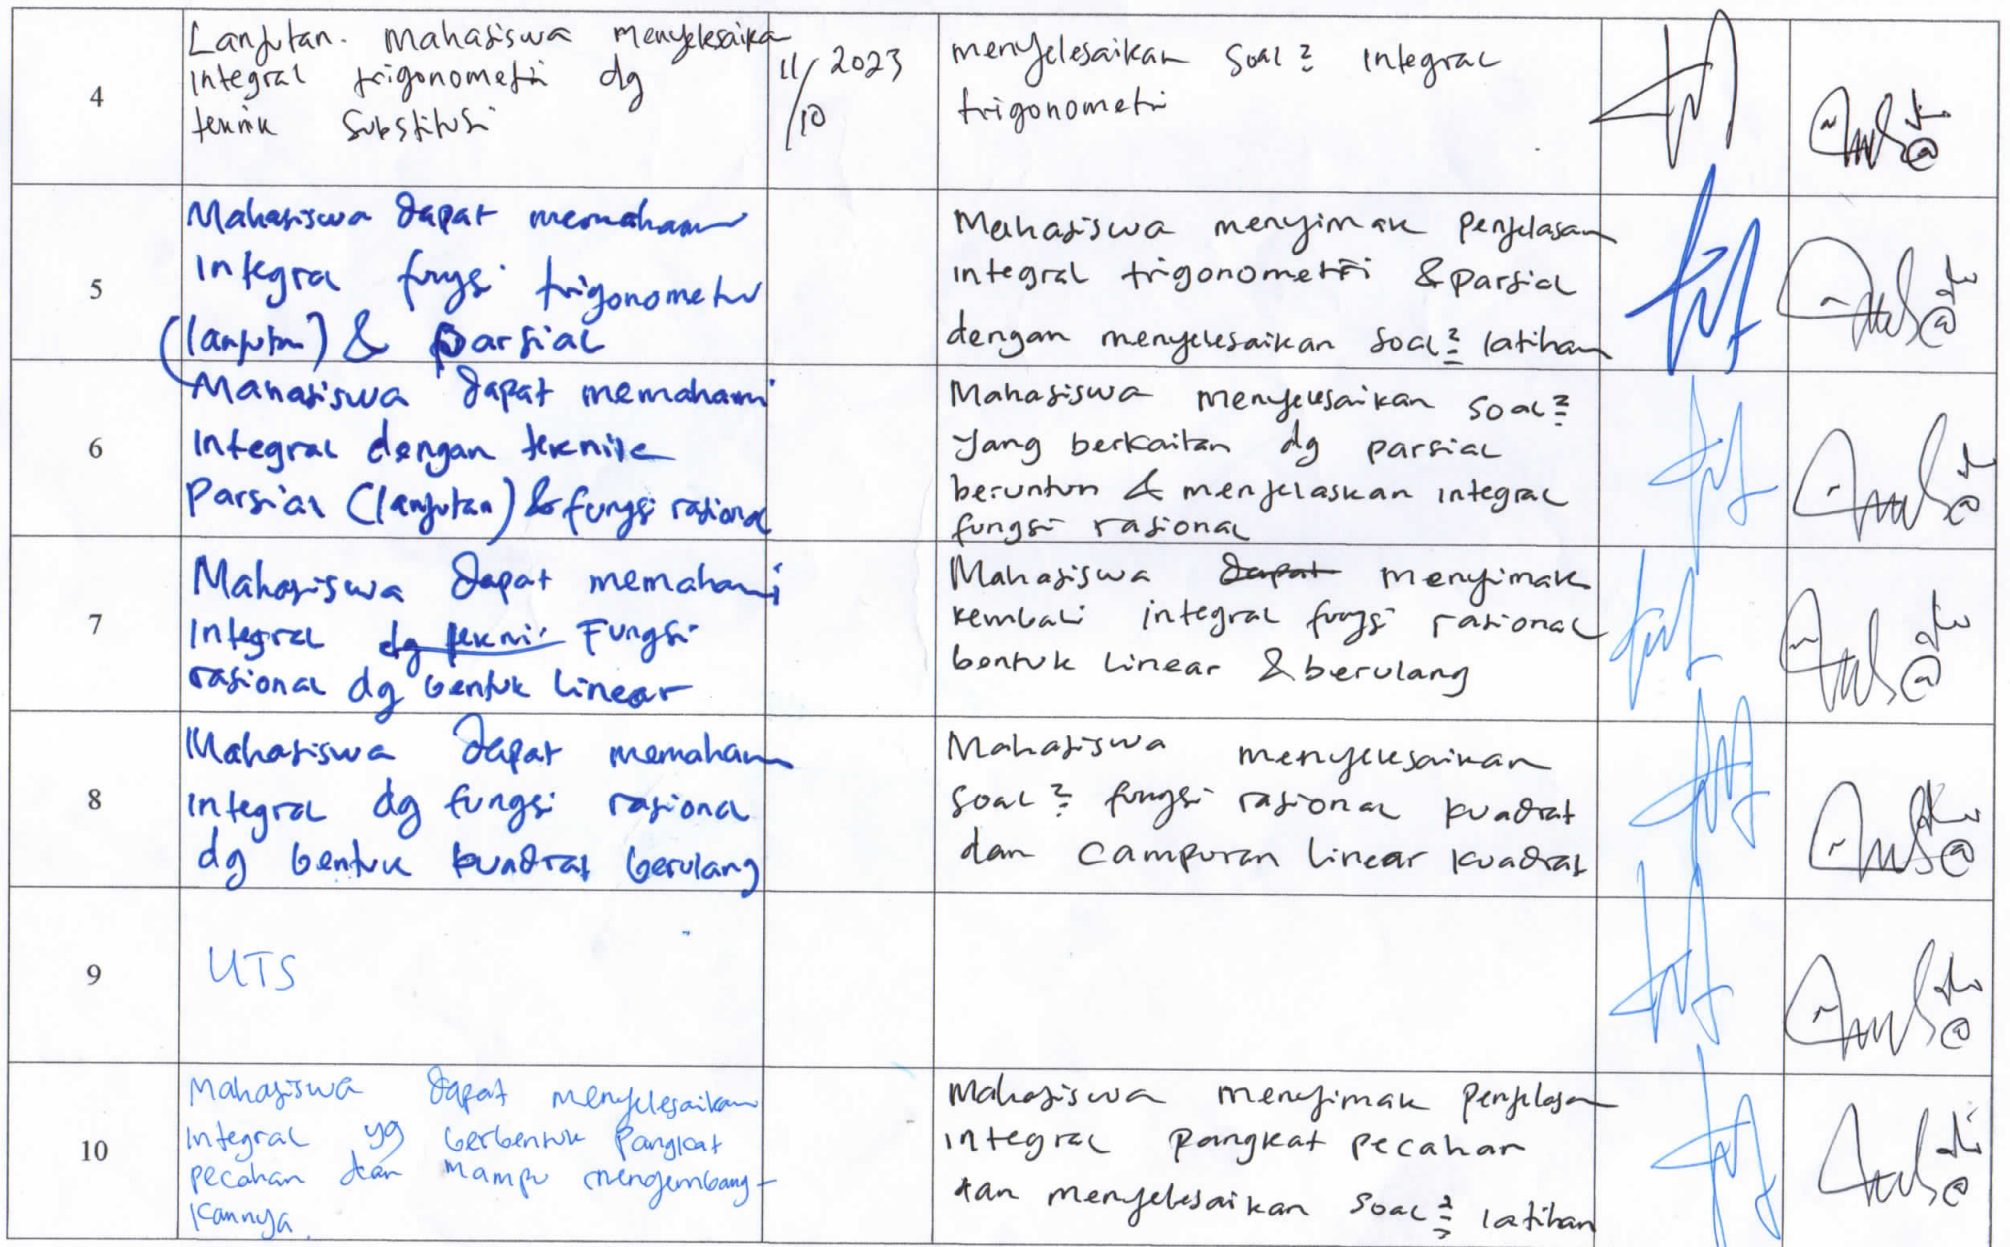 4
Lanjutan. Mahasiswa menyelesaika
integral trigonometri dg
teknik Substitusi
11/10 2023
menyelesaikan Soal² integral
trigonometri
5
Mahasiswa dapat memaham
Integral fungsi trigonometri
(lanjutan) & parsial
Mahasiswa menyimak penjelasan
integral trigonometri & parsial
dengan menyelesaikan soal² latihan
6
Mahasiswa dapat memahami
Integral dengan teknik
Parsial (lanjutan) & fungsi rasional
Mahasiswa menyelesaikan soal²
yang berkaitan dg parsial
beruntun & menjelaskan integral
fungsi rasional
7
Mahasiswa dapat memahami
Integral dg tekni Fungsi
rasional dg bentuk linear
Mahasiswa dapat menyimak
kembali integral fungsi rasional
bentuk linear & berulang
8
Mahasiswa dapat memaham
integral dg fungsi rasional
dg bentuk kuadrat berulang
Mahasiswa menyelesaikan
soal² fungsi rasional kuadrat
dan campuran linear kuadrat
9
UTS
10
Mahasiswa dapat menyelesaikan
integral yg berbentuk pangkat
pecahan dan mampu mengembang-
kannya.
Mahasiswa menyimak penjelasan
integral pangkat pecahan
dan menyelesaikan soal² latihan